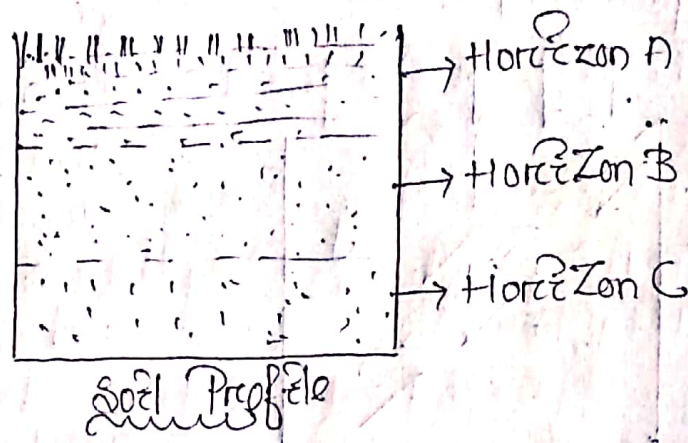 Horizon A
Horizon B
Horizon C
Soil Profile